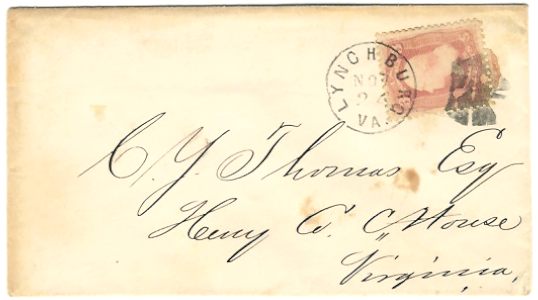 LYNCHBURG
NOV
24
VA.
C. Y. Thomas Esq
Henry C. "House
Virginia,